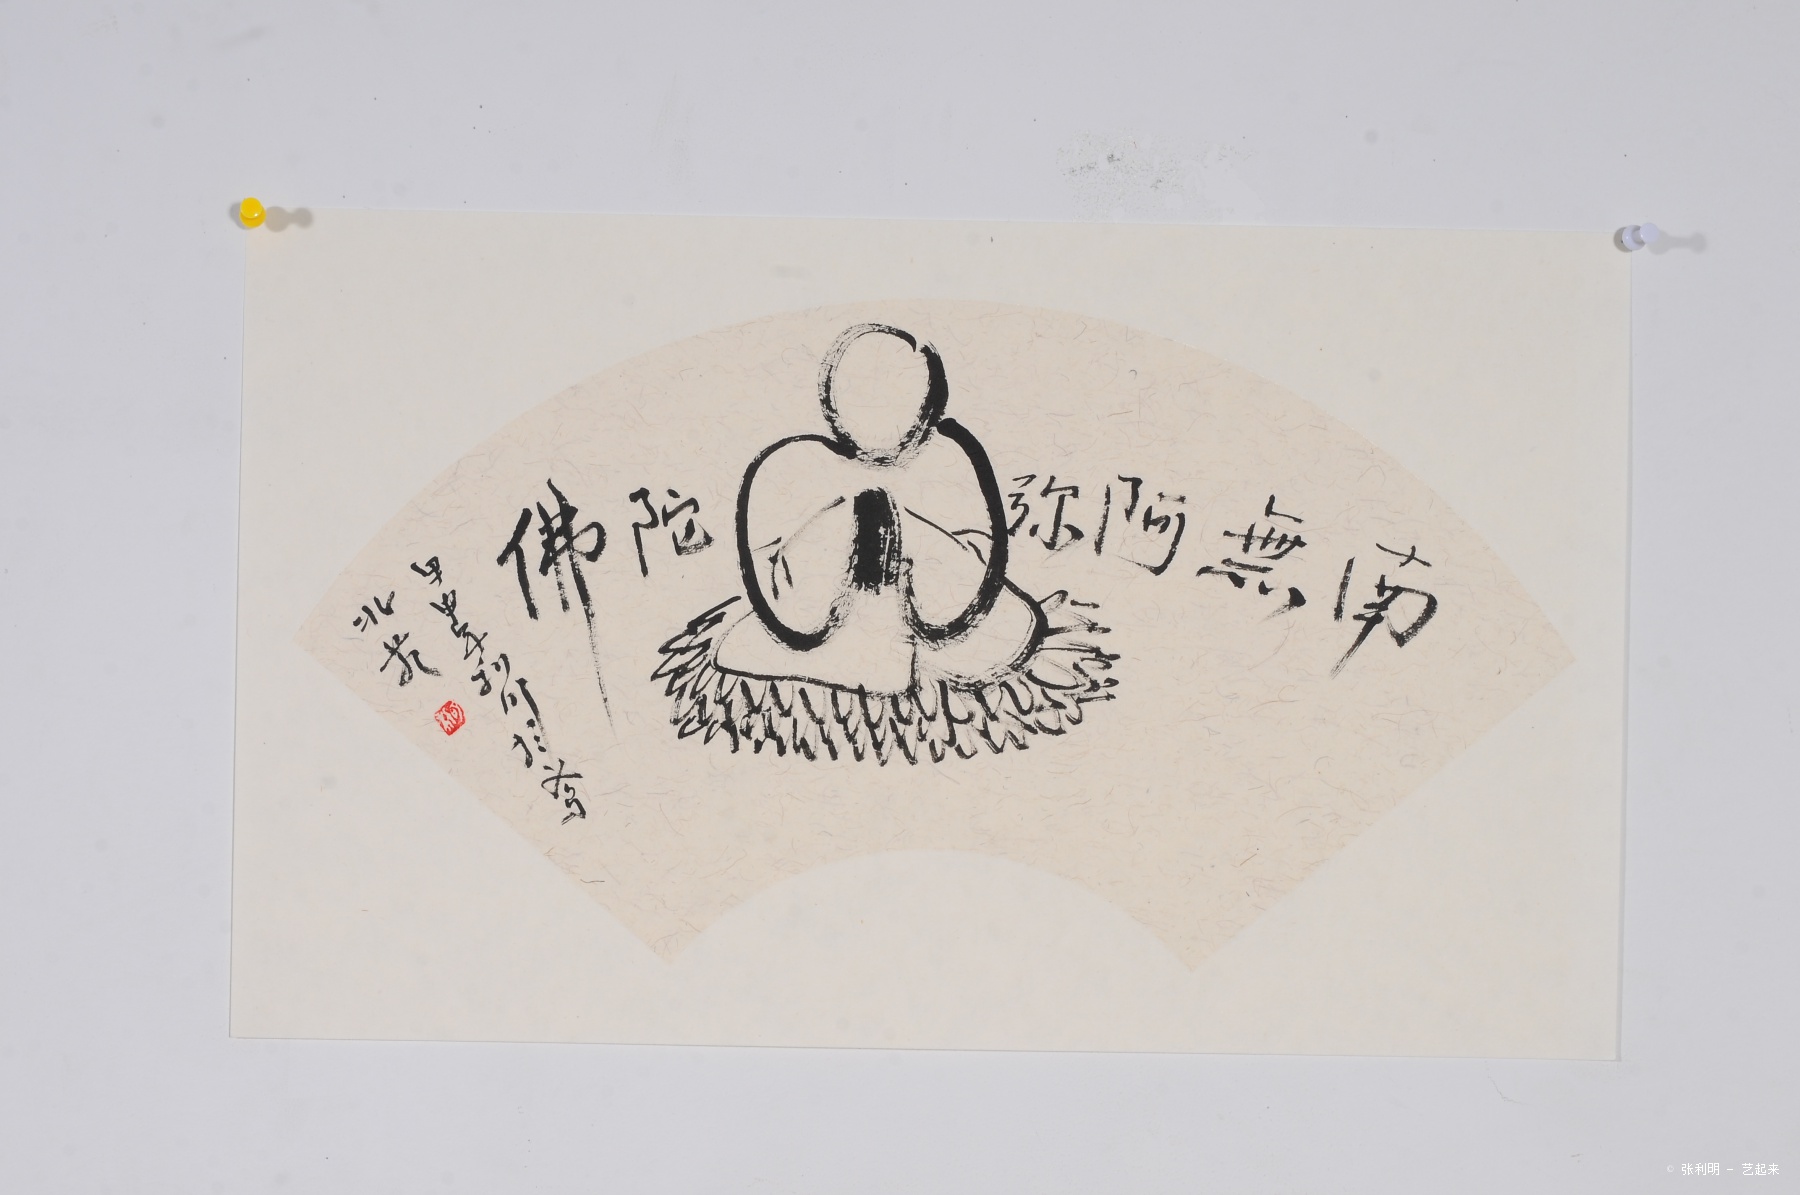 南無阿弥陀佛
甲申年利明於
北京
© 张利明 - 艺起来